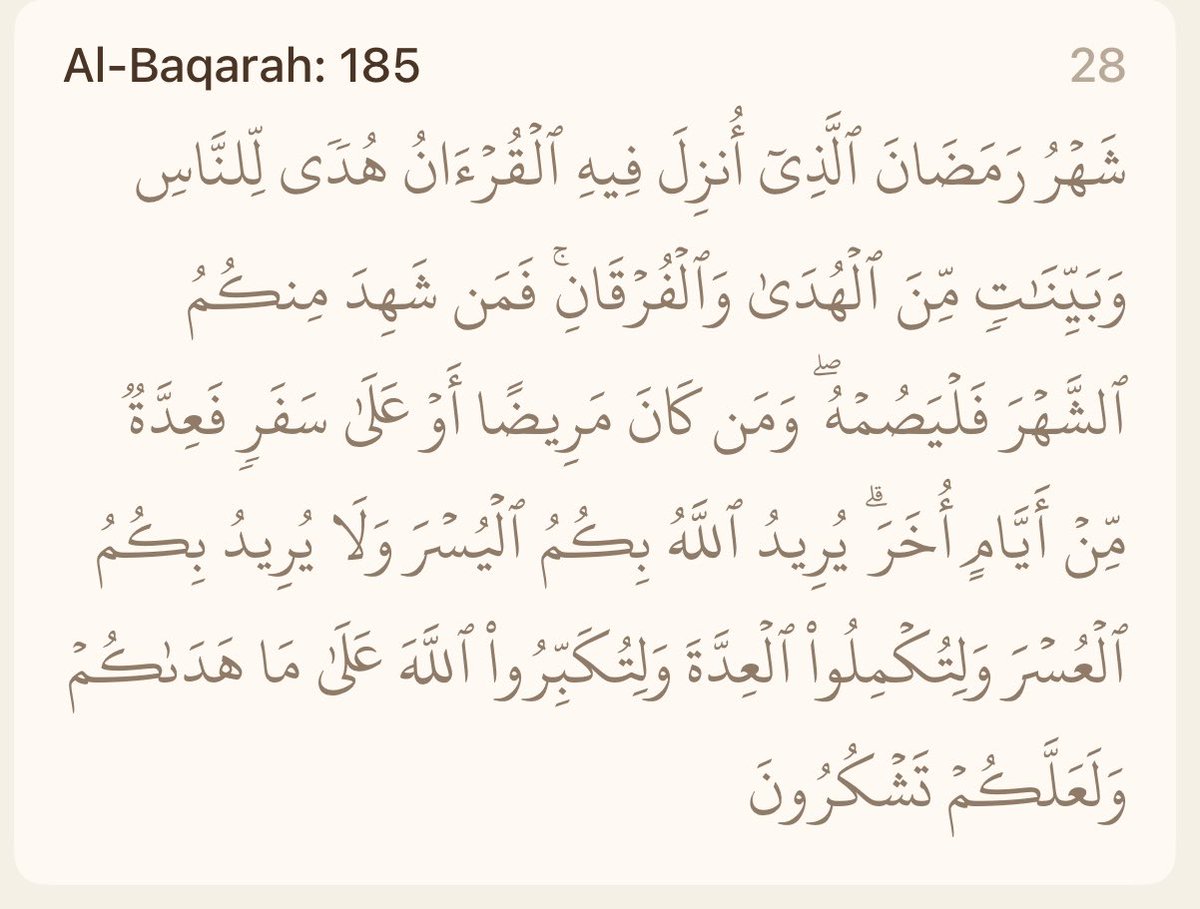 Al-Baqarah: 185 28
شَهْرُ رَمَضَانَ ٱلَّذِىٓ أُنزِلَ فِيهِ ٱلْقُرْءَانُ هُدًى لِّلنَّاسِ
وَبَيِّنَـٰتٍ مِّنَ ٱلْهُدَىٰ وَٱلْفُرْقَانِ ۚ فَمَن شَهِدَ مِنكُمُ
ٱلشَّهْرَ فَلْيَصُمْهُ ۖ وَمَن كَانَ مَرِيضًا أَوْ عَلَىٰ سَفَرٍ فَعِدَّةٌ
مِّنْ أَيَّامٍ أُخَرَ ۗ يُرِيدُ ٱللَّهُ بِكُمُ ٱلْيُسْرَ وَلَا يُرِيدُ بِكُمُ
ٱلْعُسْرَ وَلِتُكْمِلُوا۟ ٱلْعِدَّةَ وَلِتُكَبِّرُوا۟ ٱللَّهَ عَلَىٰ مَا هَدَىٰكُمْ
وَلَعَلَّكُمْ تَشْكُرُونَ